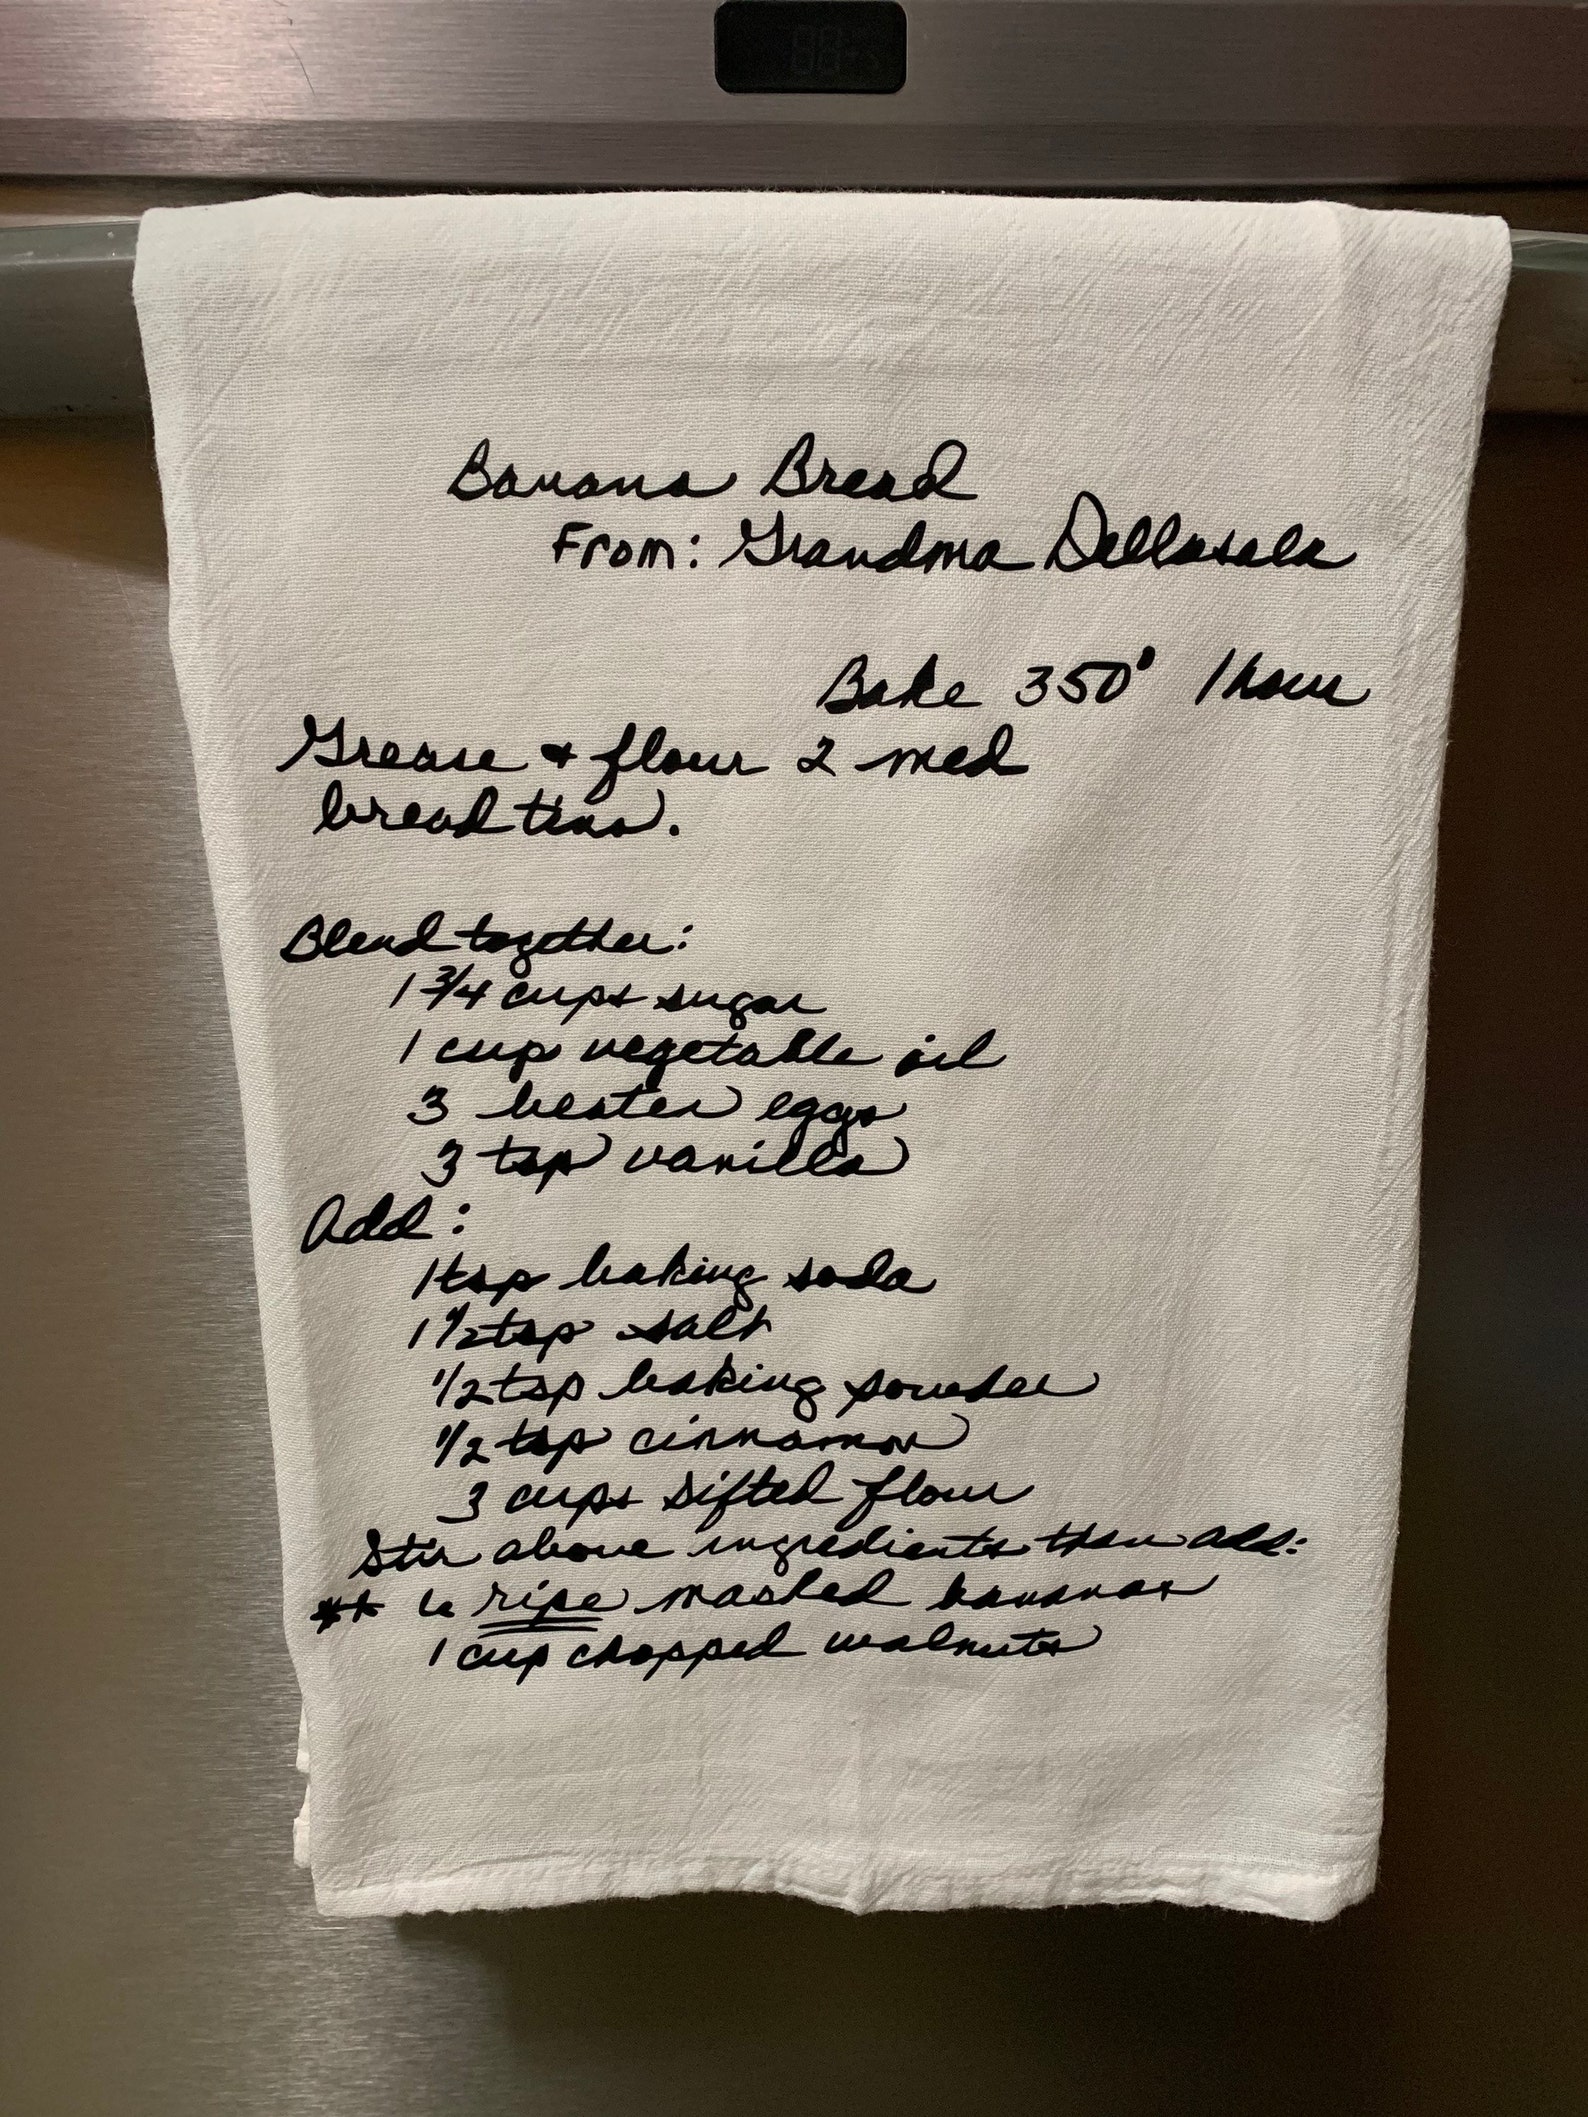 Banana Bread
From: Grandma Dellasala
Bake 350° 1 hour
Grease & flour 2 med
bread tins.
Blend together:
1 3/4 cups sugar
1 cup vegetable oil
3 beaten eggs
3 tsp vanilla
Add:
1 tsp baking soda
1 1/2 tsp salt
1/2 tsp baking powder
1/2 tsp cinnamon
3 cups sifted flour
Stir above ingredients then add:
** 6 ripe mashed bananas
1 cup chopped walnuts